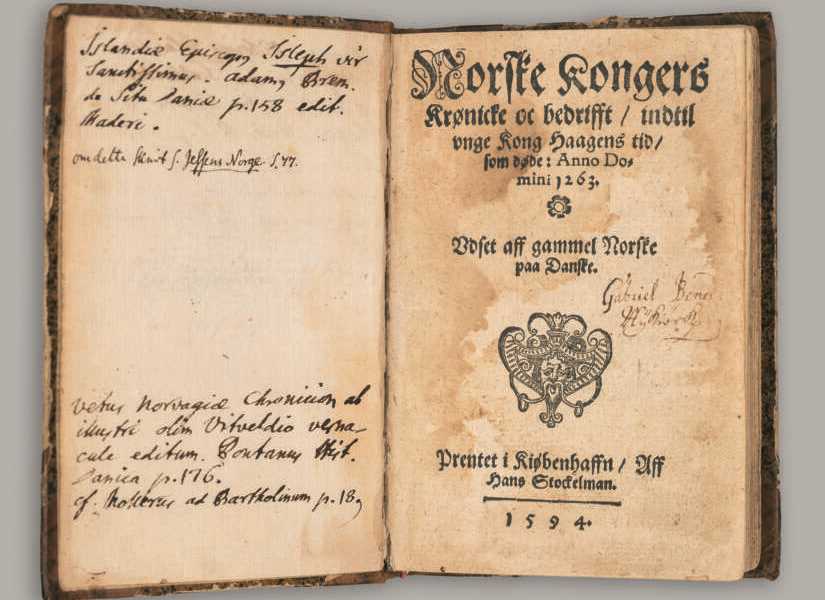 Islandiæ Episcop Isleph vir
Sanctissimus. adam Brem.
de Situ Daniæ p.158 edit.
Maderi.
om dette skrivt s. Jessens Norge. S. 77.
vetus Norvagiæ Chronicon ab
illustri olim Vitveldio verna-
cule editum. Pontanus Hist.
Danica p.176.
cf. Mollerus ad Bartholinum p.18
Norske Kongers
Krønicke oc bedrifft / indtil
vnge Kong Haagens tid /
som døde: Anno Do-
mini 1263.
Vdset aff gammel Norske
paa Danske.
Gabriel
Prentet i Kiøbenhaffn / Aff
Hans Stockelman.
1594.